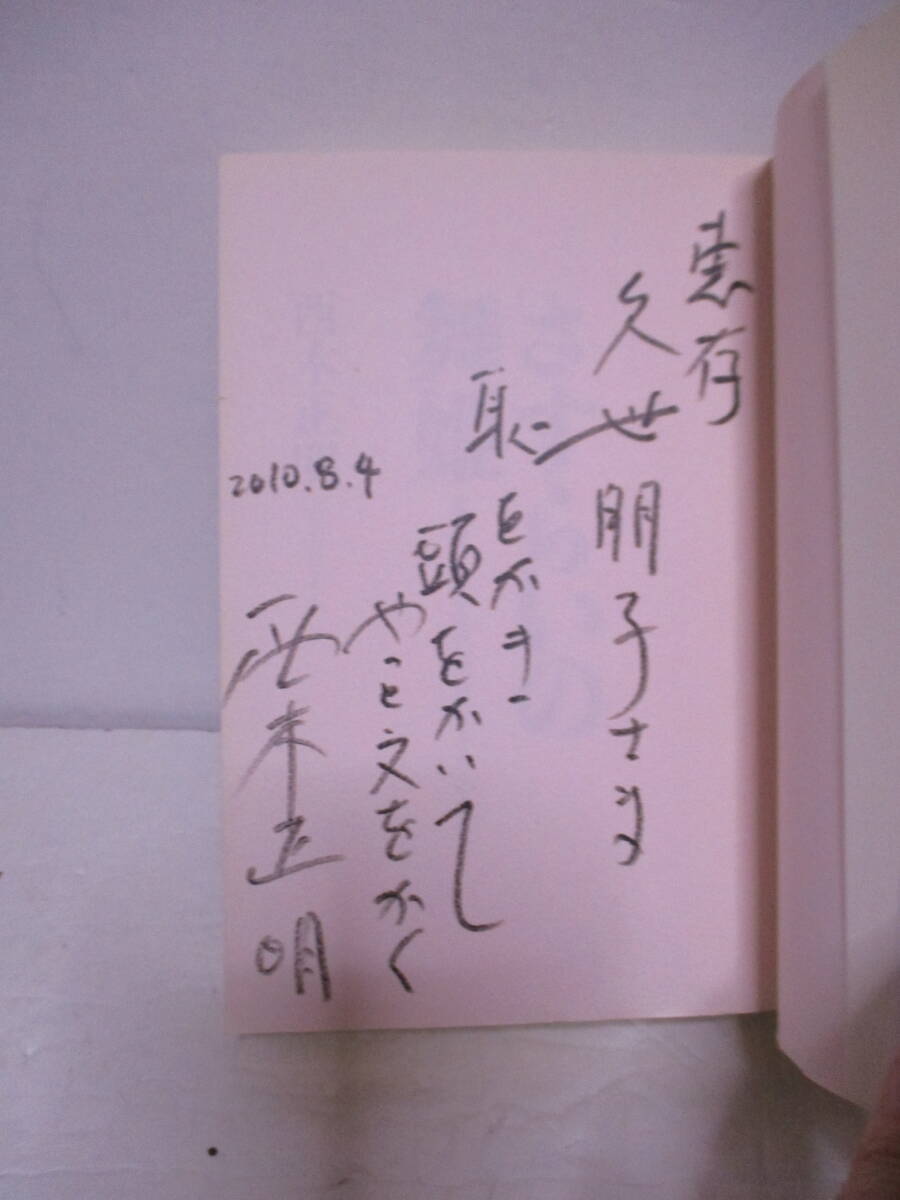 恵存
久世朋子さま
恥をかき
頭をかいて
やっと文をかく
2010.8.4
西木正明